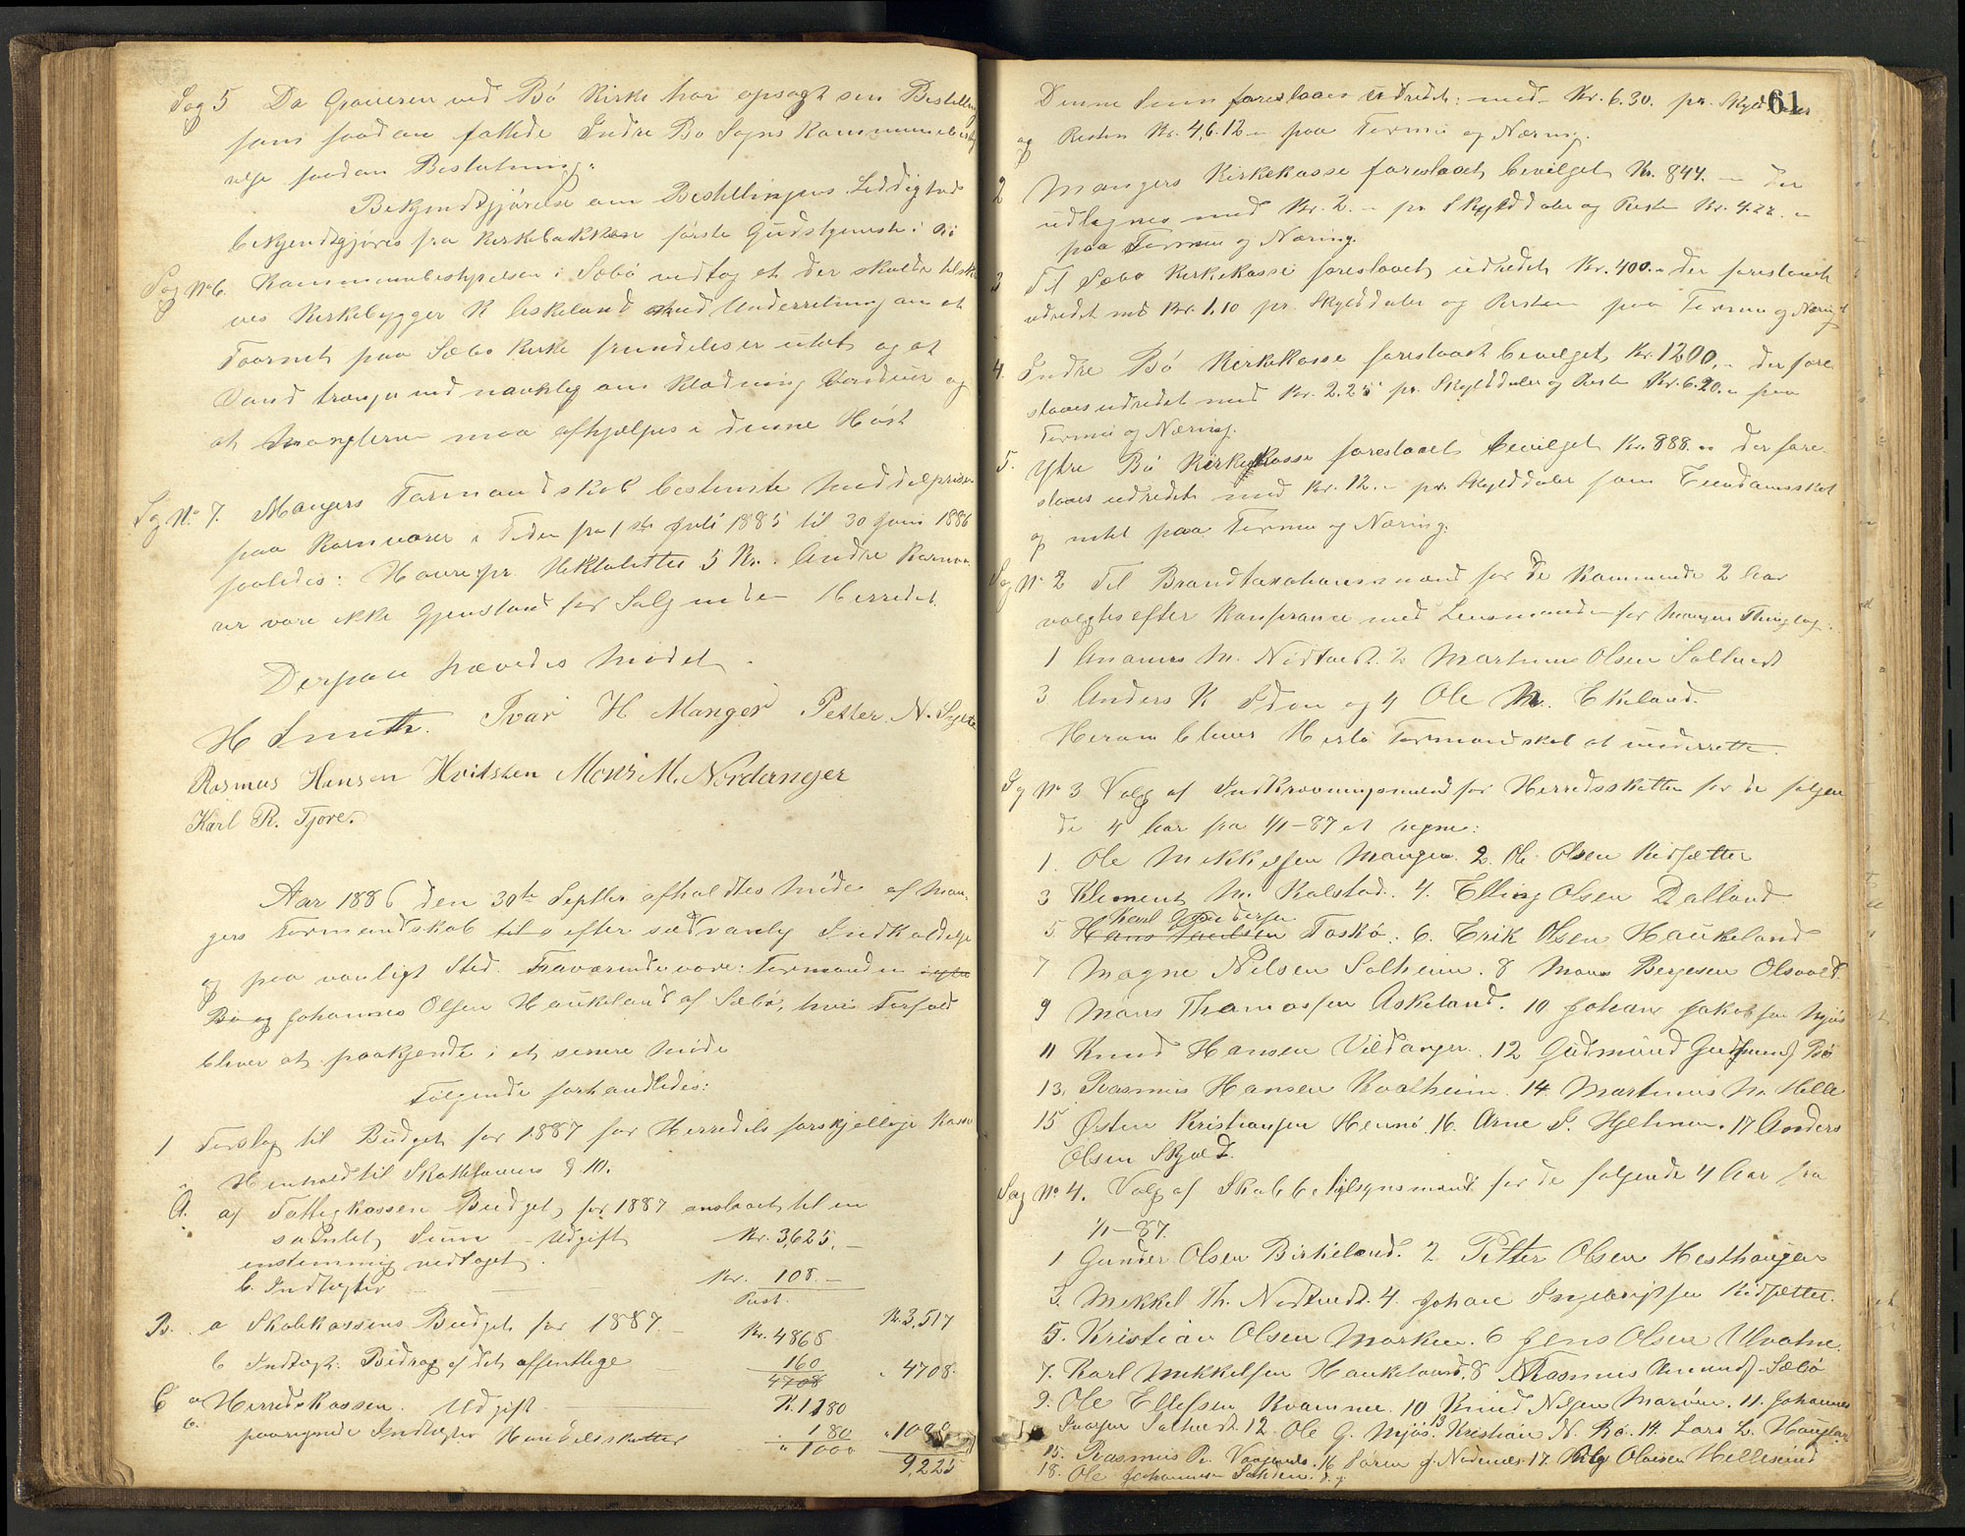 Sag 5 Da Graveren ved Bö Kirke har opsagt sin Bestilling
som saadan fattede Indre Bö Sogns Kommunebesty
relse saadan Beslutning:
Bekjendtgjörelse om Bestillingens Ledighed
bekjendtgjöres fra Kirkebakken förste Gudstjeneste i Bö
Sag No 6. Kommunebestyrelsen i Sæbö vedtog at der skulde tilskri
ves Kirkebygger K Askeland med Underretning om at
Taarnet paa Sæbö Kirke fremdeles er utæt og at
Vand trænger ind navnlig om Klædning Vinduer og
at Manglerne maa afhjælpes i denne Höst
Sag No 7. Mangers Formandskab bestemte Middelprisen
paa Kornvarer i Tiden fra 1ste Juli 1885 til 30 Juni 1886
saaledes: Havre pr. Hektoliter 5 Kr. Andre Kornva
rer vare ikke Gjenstand for Salg inden Herredet.
Derpaa hævedes Mödet.
H Smith. Ivar H Manger Petter N.
Rasmus Hansen Hvitsten Mons M. Nordanger
Karl R. Fjöre.
Aar 1886 den 30te Septbr afholdtes Möde af Man-
gers Formandskab efter sædvanlig Indkaldelse
og paa vanligt Sted. Fraværende vare: Formanden i ytre
Bö og Johannes Olsen Haukeland af Sæbö, hvis Forfald
bliver at paakjende i et senere Möde
Fölgende forhandledes:
1 Forslag til Budget for 1887 for Herredets forskjellige Kasser
i Henhold til Skatteloven § 10.
A. a) Fattigkassens Budget for 1887 anslaaet til en
samlet Sum - Udgift Kr. 3,625,—
enstemmig vedtaget.
b. Indtægter Kr. 108.—
Rest. Kr. 3,517
B. a Skolekassens Budget for 1887. Kr. 4868
b Indtægt: Bidrag af det offentlige 160 " 4708.
4708
C a Herredskassen. Udgift K. 1180
b. paaregnede Indtægter Handelsskatter 180
" 1000 " 1000
9,225
61
Denne Sum foreslaaes udredet: med Kr. 6.30. pr. Skylddaler
og Resten Kr. 4,6.12 " paa Formue og Næring.
2 Mangers Kirkekasse foreslaaet bevilget Kr. 844. – der
udlignes med Kr. 2. – pr Skylddaler og Resten Kr. 422. –
paa Formue og Næring.
3 Til Sæbö Kirkekasse foreslaaet udredet Kr. 400. – der foreslaaet
udredet med Kr. 1,10 pr. Skylddaler og Resten paa Formue og Næring
4. Indre Bö Kirkekasse foreslaaet bevilget Kr. 1200, – der fore
slaaes udredet med Kr. 2.25 pr. Skylddaler og Resten Kr. 620. – paa
Formue og Næring.
5. Ytre Bö Kirkekasse foreslaaet bevilget Kr. 888. – der fore
slaaes udredet med Kr. 12. – pr. Skylddaler som Eiendomsskat
og intet paa Formue og Næring.
Sag No 2 Til Brandtaxationsmænd for de kommende 2 Aar
valgtes efter Konferance med Lensmanden for Mangers Thinglag:
1 M. Nidtvedt. 2 Martinus Olsen Soltvedt
3 Anders K og 4 Ole M. Ekeland.
Herom bliver Herlö Formandskab at underrette.
Sag No 3 Valg af Indkrævningsmænd for Herredsskatten for de fölgen
de 4 Aar fra 1/1-87 at regne:
1. Ole Mikkelsen Manger. 2. Ole Olsen Kidsætter
3 Klement M. Kalstad. 4. Elling Olsen Dalland
Karl Gundersen
5. Hans Paulsen Toskö. 6. Erik Olsen Haukeland
7 Magne Nilsen Solheim. 8 Mons Berjesen Olsvold.
9 Mons Thomassen Askeland. 10 Johan Jakobsen Mjös
11 Knud Hansen Vildanger. 12 Gudmund Gudmunds Bö
13. Rasmus Hansen Kvalheim. 14 Martinus M. Helle
15 Östen Kristiansen Hernö. 16. Arne S. Hjelmen. 17 Anders
Olsen Skjæl.
Sag No 4. Valg af Skoletilsynsmænd for de fölgende 4 Aar fra
1/1-87.
1 Gunder Olsen Birkeland. 2 Petter Olsen Hesthaugen
3. Mikkel Th. Nidtvedt. 4. Johan Ingebrigtsen Kidsætter.
5. Kristian Olsen Marken. 6 Jens Olsen Ulvatne.
7. Karl Mikkelsen Haukeland. 8 Rasmus Amunds. Sæbö
9. Ole Ellefsen Kvamme. 10 Knud Nilsen Maröen. 11. Johannes
Ivarsen Soltvedt. 12. Ole G. Mjös. 13 Kristian N. Bö. 14. Lars L. Haugland
15. Rasmus P. Vaagenes. 16 Sören J. Nödenes. 17. Olaisen Hellesund
18. Ole Johannesen